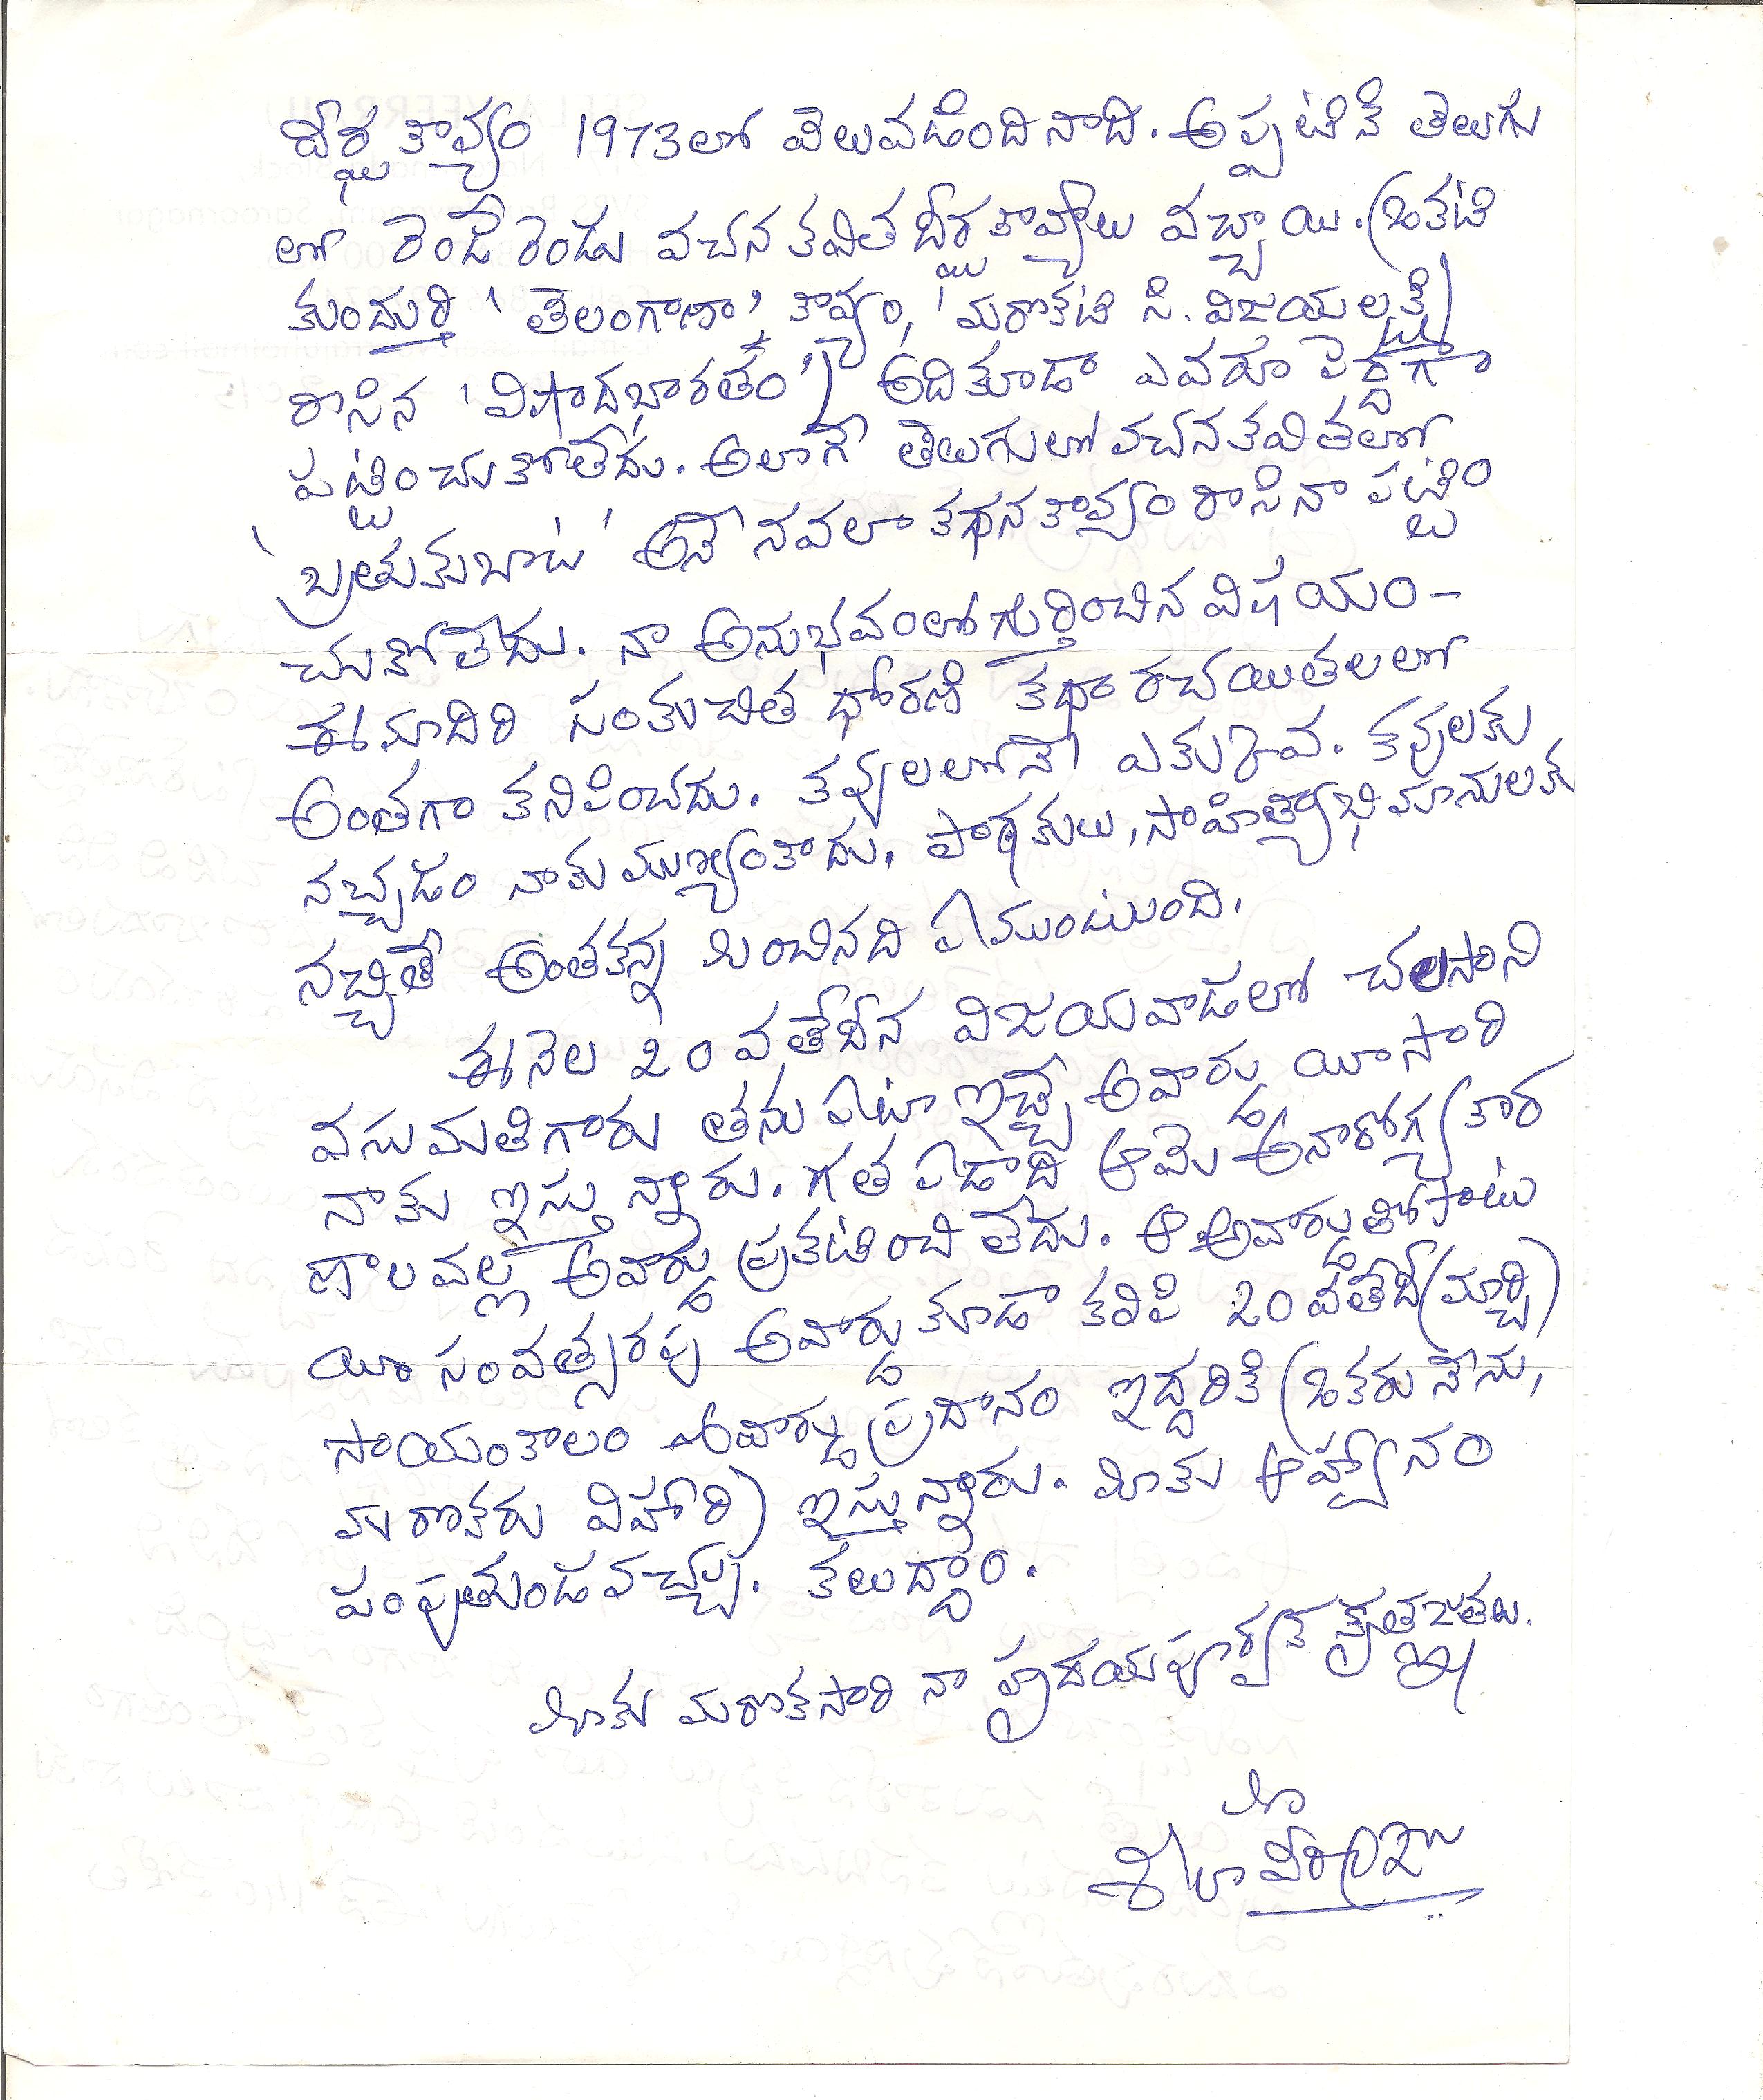 దీర్ఘ కావ్యం 1973లో వెలువడింది నాది. అప్పటికే తెలుగు
లో రెండే రెండు వచన కవిత దీర్ఘ కావ్యాలు వచ్చాయి. (ఒకటి
కుందుర్తి 'తెలంగాణా' కావ్యం, మరొకటి సి. విజయలక్ష్మి
రాసిన 'విషాదభారతం') అదికూడా ఎవరూ పెద్దగా
పట్టించుకోలేదు. అలాగే తెలుగులో వచనకవితలో
'బ్రతుకుబాట' అనే నవలా కథన కావ్యం రాసినా పట్టిం
చుకోలేదు. నా అనుభవంలో గుర్తించిన విషయం -
ఈమాదిరి సంకుచిత ధోరణి కథా రచయితలలో
అంతగా కనిపించదు. కవులలోనే ఎక్కువ. కవులకు
నచ్చడం నాకు ముఖ్యంకాదు. పాఠకులు, సాహిత్యాభిమానులకు
నచ్చితే అంతకన్న మించినది ఏముంటుంది.
ఈ నెల 20వతేదీన విజయవాడలో చలసాని
వసుమతిగారు తను ఏటా ఇచ్చే అవార్డు యీసారి
నాకు ఇస్తున్నారు. గత ఏడాది ఆమె అనారోగ్య కార
ణాలవల్ల అవార్డు ప్రకటించలేదు. ఆ అవార్డుతోపాటు
యీ సంవత్సరపు అవార్డు కూడా కలిపి 20వతేదీ (మార్చి)
సాయంకాలం అవార్డు ప్రదానం ఇద్దరికీ (ఒకరు నేను,
మరొకరు విహారి) ఇస్తున్నారు. మీకు ఆహ్వానం
పంపుతుండవచ్చు. కలుద్దాం.
మీకు మరొకసారి నా హృదయపూర్వక కృతజ్ఞతలు.
మీ
శీలా వీర్రాజు